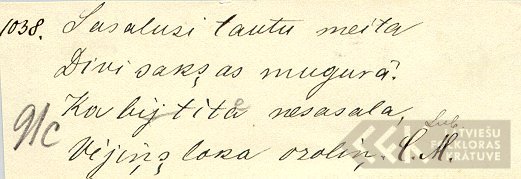 1038. Sasalusi tautu meita
Divi sakşas mugurâ.
Ka bij tita nesasala,
91c
Vijiņş loka ozoliņ. C. M.
Lub.
LATVIEŠU
FOLKLORAS
KRĀTUVE